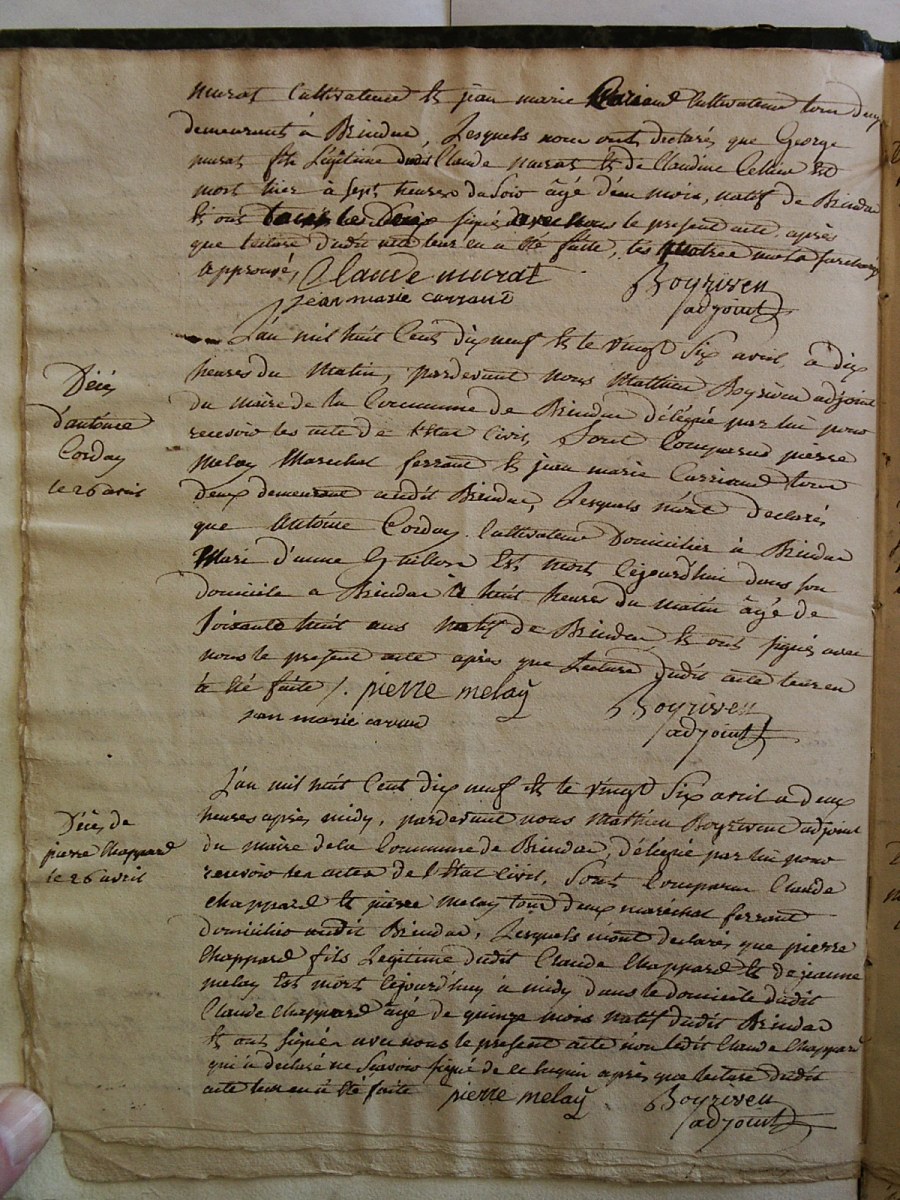 murat Cultivateur Et jean marie Carriaud Cultivateur tous deux
demeurant à Brindas, Lesquels nous ont declarés que George
murat fils Légitime dudit Claude murat Et de Claudine Cellier Est
mort hier à Sept heures du Soir âgé d'un mois, natif de Brindas
Et ont tous les deux signé avec nous le present acte après
que lecture dudit acte leur en a été faitte, les quatres mots
approuvé, Claude murat Boyriven
jean marie carraud adjoint
L'an mil huit Cent dix neuf Et le vingt Six avril, à dix
heures du Matin, pardevant nous Matthieu Boyriven adjoint
du maire de la Commune de Brindas délégué par lui pour
recevoir les acte de l'Etat Civil, Sont Comparus pierre
melay Marechal ferrant Et jean marie Carriaud tous
deux demeurant audit Brindas, Lesquels m'ont declarés
que Antoine Corday Cultivateur Domicilier à Brindas
Mari d'anne Guillon Est mort Cejourd'hui dans Son
domicile a Brindas à huit heures du Matin âgé de
Soixante huit ans natif de Brindas, Et ont signés avec
nous le present acte après que Lecture dudit acte leur en
à été faite /. pierre melaÿ Boyriven
jean marie carraud adjoint
Décés
d'antoine
Corday
le 26 avril
L'an mil huit Cent dix neuf Et le vingt Six avril a deux
heures après midy, pardevant nous Mathieu Boyrivent adjoint
du maire dela Commune de Brindas, délégué par lui pour
recevoir les actes de l'Etat Civil, Sont Comparus Claude
chappard Et pierre melay tous deux maréchal ferrant
domicilié audit Brindas, Lesquels m'ont declarés que pierre
Chappard fils Légitime dudit Claude Chappard Et de jeanne
melay Est mort Cejourd'huy à midy dans le domicile dudit
Claude Chappard âgé de quinze mois natif dudit Brindas
Et ont signé avec nous le present acte non ledit Claude Chappard
qui à déclaré ne Savoir signé de ce Enquis apres que lecture dudit
acte leur en à été faite pierre melaÿ Boyriven
adjoint
Décés de
pierre Chappard
le 26 avril